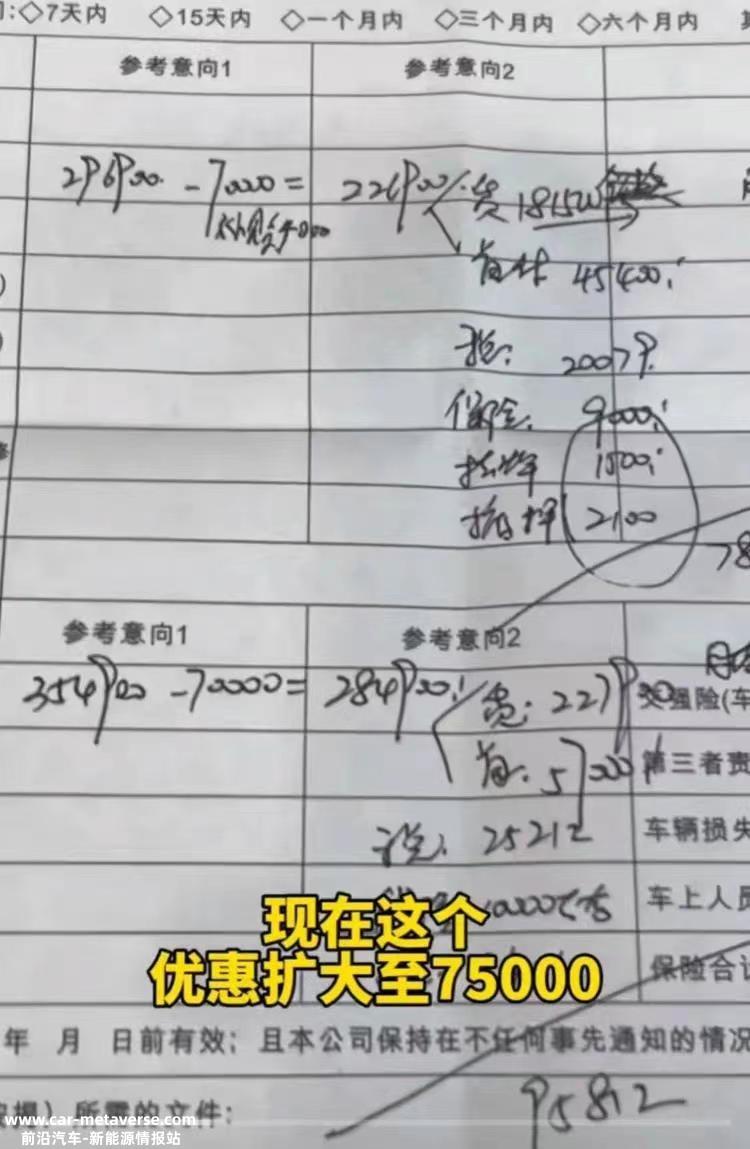 ◇7天内 ◇15天内 ◇一个月内 ◇三个月内 ◇六个月内
参考意向1 参考意向2
296900 - 70000 = 226900 贷
首付 45400
税: 20079
保险: 9000
1500
2100
参考意向1 参考意向2
354900 - 70000 = 284900 贷: 227900 交强险(车
首: 57000 第三者责
税: 25212 车辆损失
10000左右 车上人员
现在这个
优惠扩大至75000
保险合计
年 月 日前有效；且本公司保持在不任何事先通知的情况
所需的文件：
95812
www.car-metaverse.com
前沿汽车-新能源情报站